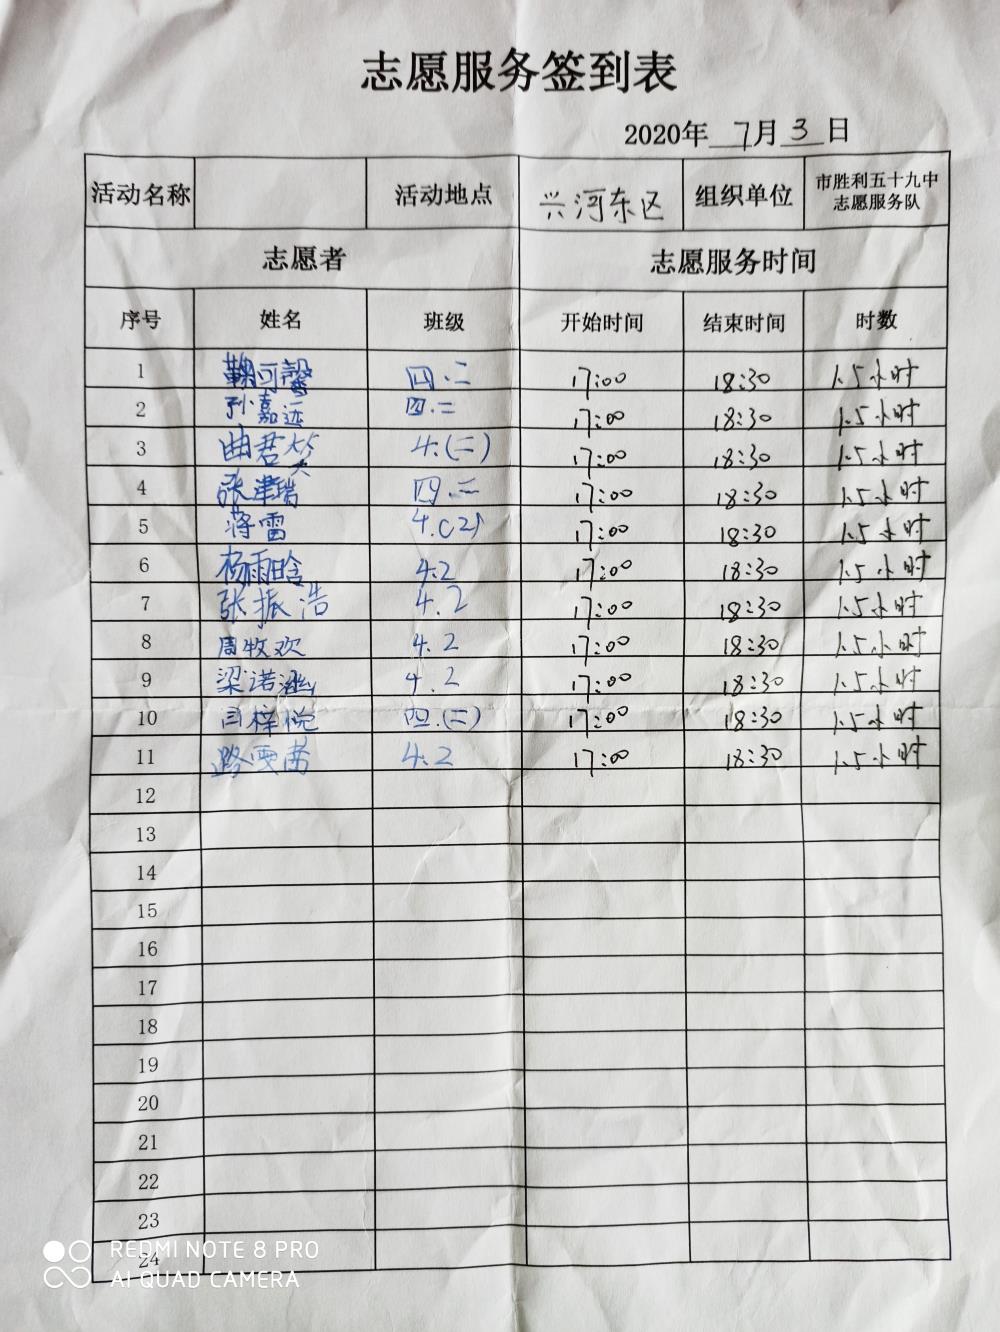 志愿服务签到表
2020年 7月 3 日
活动名称 活动地点 兴河东区 组织单位 市胜利五十九中志愿服务队
志愿者 志愿服务时间
序号 姓名 班级 开始时间 结束时间 时数
1 鞠可馨 四.二 17:00 18:30 1.5小时
2 孙嘉远 四.二 17:00 18:30 1.5小时
3 曲君笑 4.(二) 17:00 18:30 1.5小时
4 张津瑞 四.二 17:00 18:30 1.5小时
5 蒋雷 4.(2) 17:00 18:30 1.5小时
6 杨雨晗 4.2 17:00 18:30 1.5小时
7 张振浩 4.2 17:00 18:30 1.5小时
8 周牧欢 4.2 17:00 18:30 1.5小时
9 梁诺涵 4.2 17:00 18:30 1.5小时
10 梓悦 四.(二) 17:00 18:30 1.5小时
11 路雯茜 4.2 17:00 18:30 1.5小时
12
13
14
15
16
17
18
19
20
21
22
23
24
REDMI NOTE 8 PRO
AI QUAD CAMERA